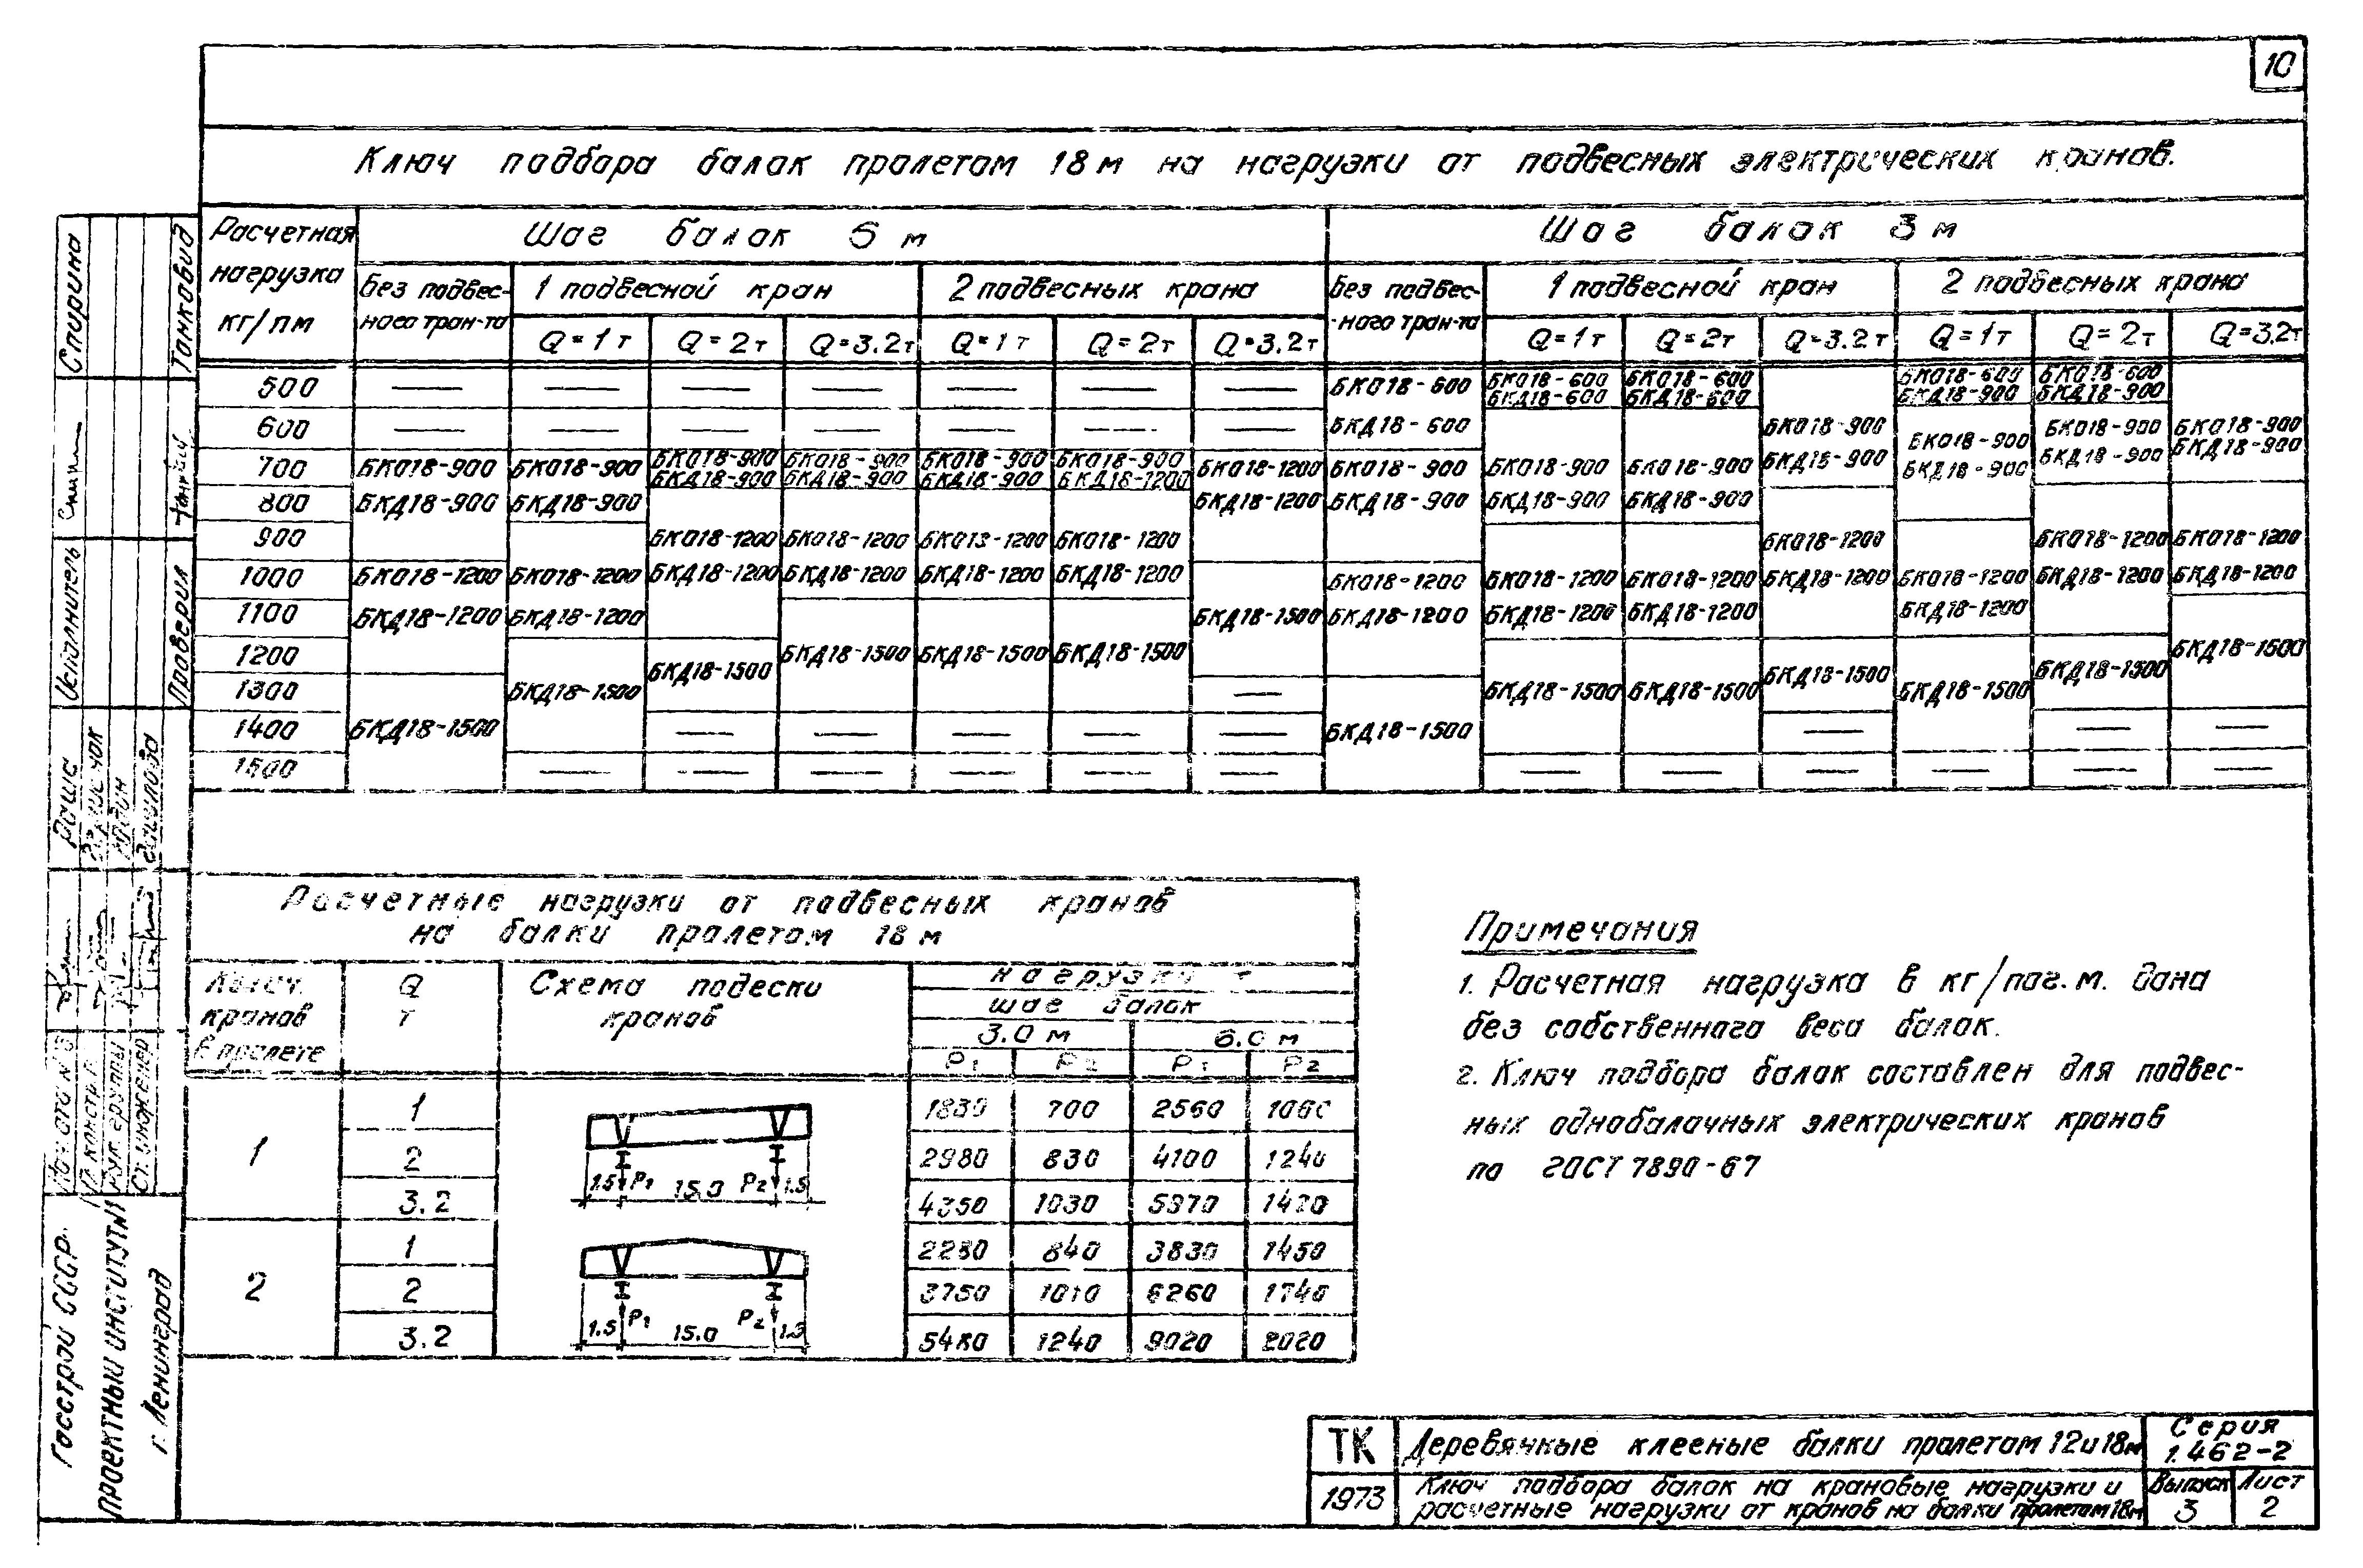 10
Ключ подбора балок пролетом 18 м на нагрузки от подвесных электрических кранов.
Расчетная нагрузка кг/пм
Шаг балок 6 м
Шаг балок 3 м
Без подвес-
ного тран-та
1 подвесной кран
2 подвесных крана
Без подвес-
-ного тран-та
1 подвесной кран
2 подвесных крана
Q=1т Q=2т Q=3.2т Q=1т Q=2т Q=3.2т Q=1т Q=2т Q=3.2т Q=1т Q=2т Q=3.2т
500 — — — — — — — БКО18-600 БКО18-600 БКО18-600 БКО18-600 БКО18-600
БКД18-600 БКД18-600 БКД18-900 БКД18-900
600 — — — — — — — БКД18-600 БКО18-900 БКО18-900 БКО18-900 БКО18-900
700 БКО18-900 БКО18-900 БКО18-900 БКО18-900 БКО18-900 БКО18-900 БКО18-1200 БКО18-900 БКО18-900 БКО18-900 БКД18-900 БКД18-900 БКД18-900 БКД18-900
БКД18-900 БКД18-900 БКД18-900 БКД18-1200
800 БКД18-900 БКД18-900 БКД18-1200 БКД18-900 БКД18-900 БКД18-900
900 БКО18-1200 БКО18-1200 БКО18-1200 БКО18-1200 БКО18-1200 БКО18-1200 БКО18-1200
1000 БКО18-1200 БКО18-1200 БКД18-1200 БКД18-1200 БКД18-1200 БКД18-1200 БКО18-1200 БКО18-1200 БКО18-1200 БКД18-1200 БКО18-1200 БКД18-1200 БКД18-1200
1100 БКД18-1200 БКД18-1200 БКД18-1500 БКД18-1200 БКД18-1200 БКД18-1200 БКД18-1200
1200 БКД18-1500 БКД18-1500 БКД18-1500 БКД18-1500 БКД18-1500 БКД18-1500 БКД18-1500
1300 БКД18-1500 — БКД18-1500 БКД18-1500 БКД18-1500
1400 БКД18-1500 — — — — — БКД18-1500 — — —
1500 — — — — — — — — — — — —
Расчетные нагрузки от подвесных кранов
на балки пролетом 18 м
Колич. кранов в пролете
Q
т
Схема подески
кранов
нагрузки т
шаг балок
3.0 м 6.0 м
P1 P2 P1 P2
1 1 1830 700 2560 1060
2 2980 830 4100 1240
3.2 4350 1030 5970 1420
2 1 2280 840 3830 1450
2 3750 1010 6260 1740
3.2 5480 1240 9020 2020
1.5 P1 15.0 P2 1.5
1.5 P1 15.0 P2 1.5
Примечания
1. Расчетная нагрузка в кг/пог.м. дана
без собственного веса балок.
2. Ключ подбора балок составлен для подвес-
ных однобалочных электрических кранов
по ГОСТ 7890-67
ТК
Деревянные клееные балки пролетом 12 и 18м
Серия
1.462-2
1973
Ключ подбора балок на крановые нагрузки и
расчетные нагрузки от кранов на балки пролетом 18м
Выпуск
3
Лист
2
Госстрой СССР.
проектный институт №1
г. Ленинград
Нач. отд. №3
Гл. констр.
Рук. группы
Ст. инженер
Исполнитель
Проверил
Спирина
Танковид